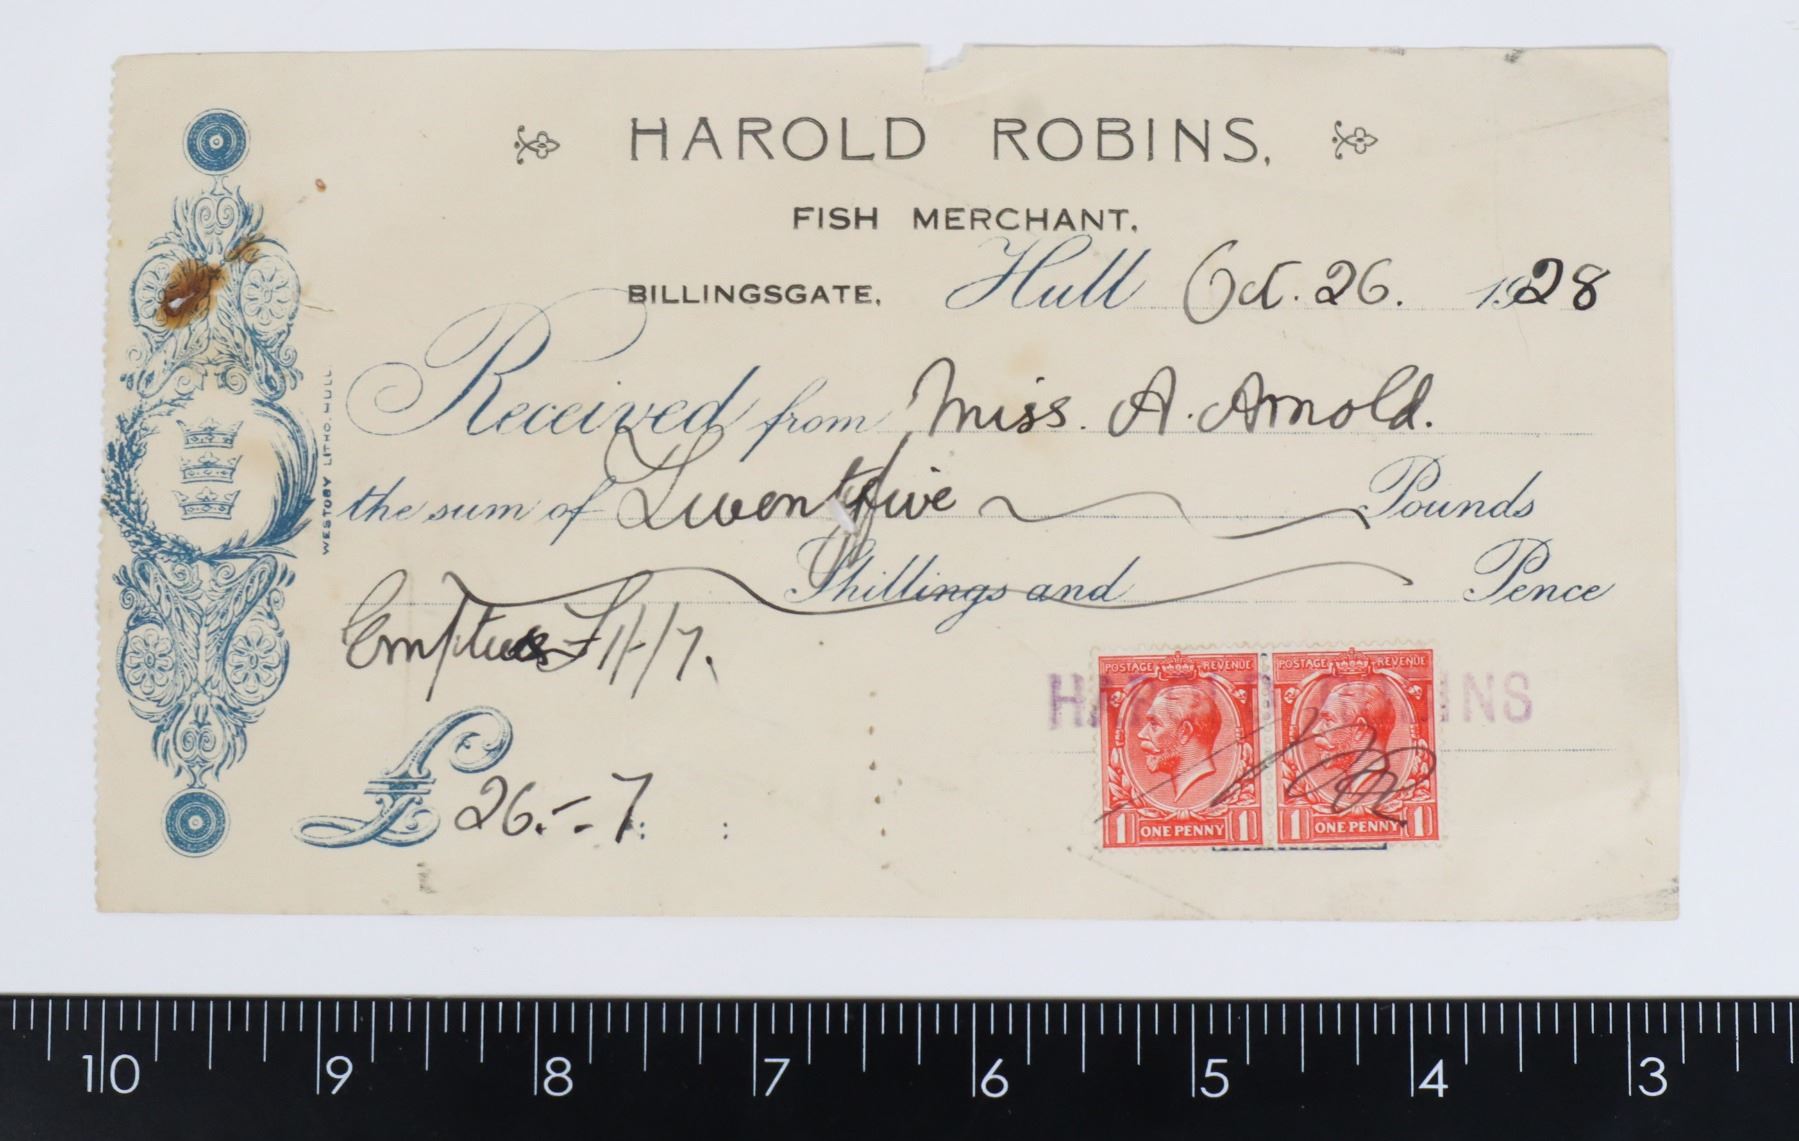 HAROLD ROBINS,
FISH MERCHANT.
BILLINGSGATE, Hull Oct. 26. 1928
Received from Miss. A. Arnold.
the sum of Twentyfive Pounds
Shillings and Pence
Empties £1/-/7.
£ 26.-.-7 : :
HAROLD ROBINS
POSTAGE REVENUE POSTAGE REVENUE
1 ONE PENNY 1 1 ONE PENNY 1
WESTOBY LITHO. HULL.
10 9 8 7 6 5 4 3